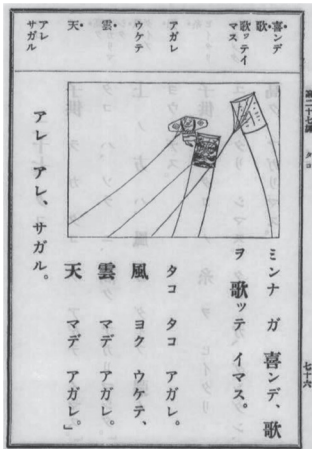 第二十七課 タコ 七十六
喜ンデ
歌
歌ッテイ
マス
アガレ
ウケテ
雲
天
アレ
サガル
ミンナ ガ 喜ンデ、歌
ヲ 歌ッテ イマス。
タコ タコ アガレ。
風 ヨク ウケテ、
雲 マデ アガレ。
天 マデ アガレ。」
アレ アレ、サガル。